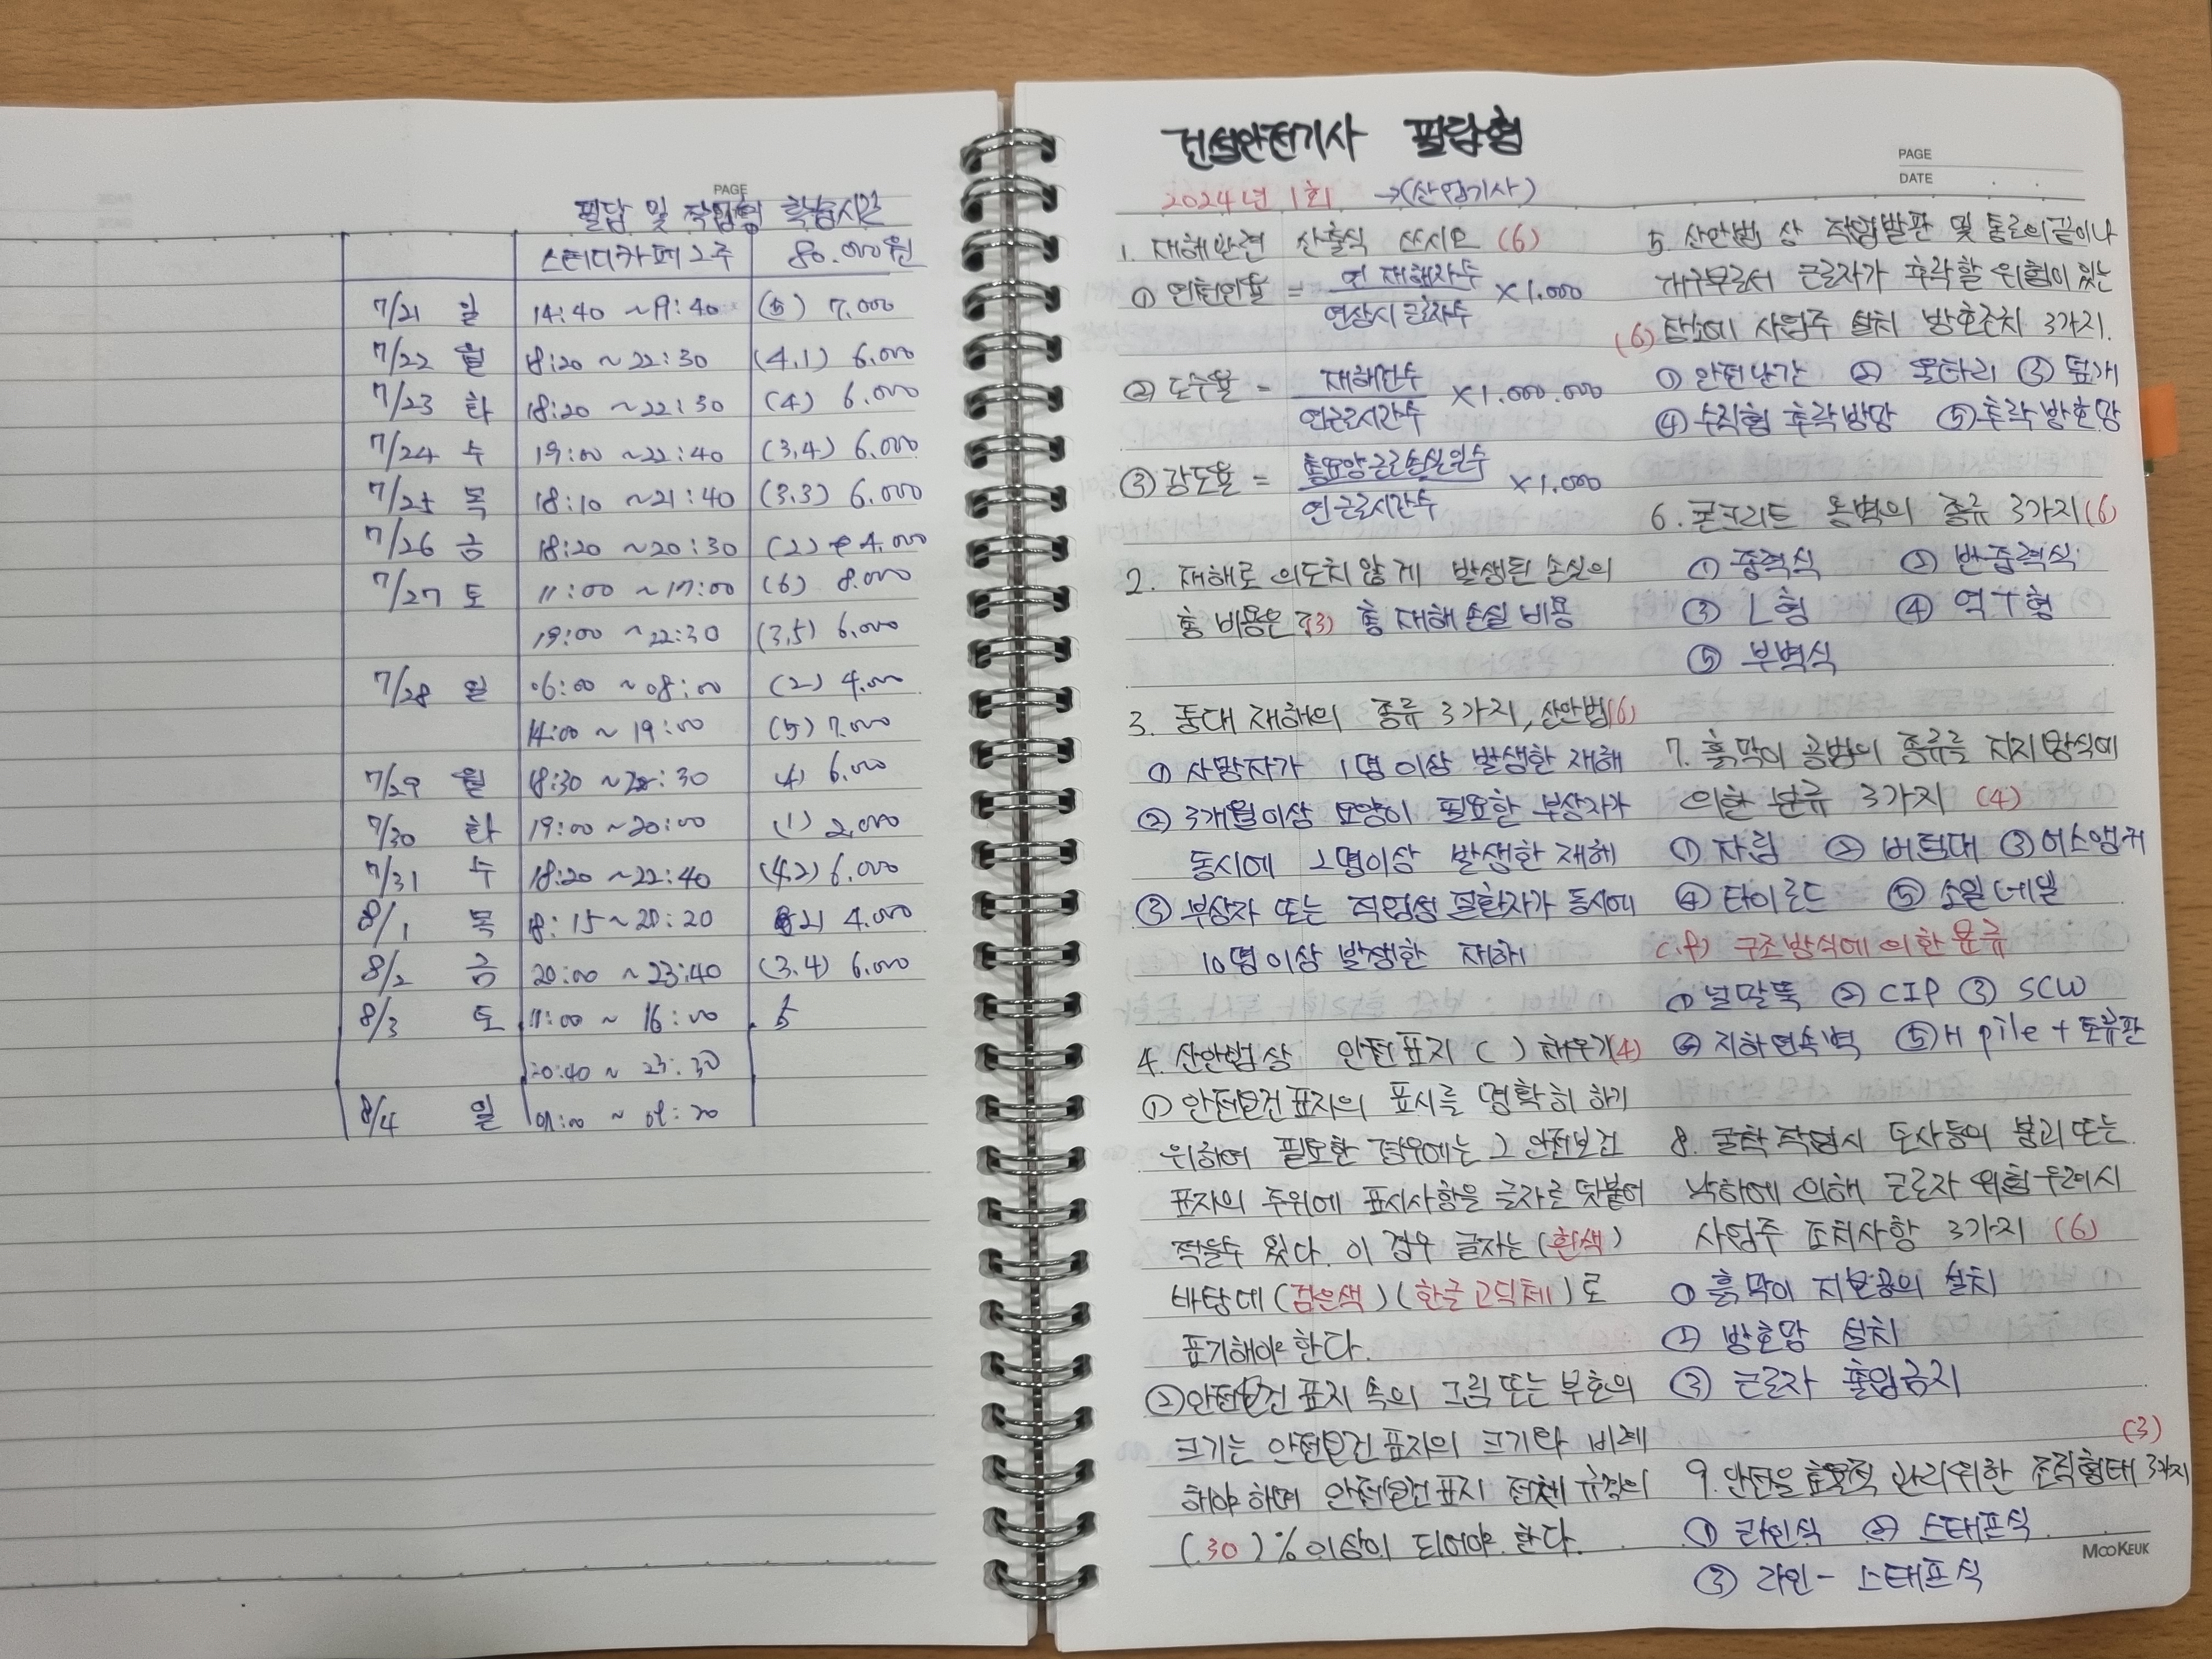 PAGE
필답 및 작업형 학습시간
스터디카페 2주 80.000원
7/21 일 14:40 ~ 19:40 (5) 7.000
7/22 월 18:20 ~ 22:30 (4.1) 6.000
7/23 화 18:20 ~ 22:30 (4) 6.000
7/24 수 19:00 ~ 22:40 (3.4) 6.000
7/25 목 18:10 ~ 21:40 (3.3) 6.000
7/26 금 18:20 ~ 20:30 (2) 4.000
7/27 토 11:00 ~ 17:00 (6) 8.000
19:00 ~ 22:30 (3.5) 6.000
7/28 일 06:00 ~ 08:00 (2) 4.000
14:00 ~ 19:00 (5) 7.000
7/29 월 18:30 ~ 22:30 4) 6.000
7/30 화 19:00 ~ 20:00 (1) 2.000
7/31 수 18:20 ~ 22:40 (4.2) 6.000
8/1 목 18:15 ~ 20:20 2) 4.000
8/2 금 20:00 ~ 23:40 (3.4) 6.000
8/3 토 11:00 ~ 16:00 5
20:40 ~ 23:30
8/4 일
건설안전기사 필답형
PAGE
DATE
2024년 1회 →(산업기사)
1. 재해관련 산출식 쓰시오 (6)
① 연천인율 = 연 재해자수 / 연상시 근로자수 × 1.000
② 도수율 = 재해건수 / 연근로시간수 × 1.000.000
③ 강도율 = 총요양근로손실일수 / 연근로시간수 × 1.000
2. 재해로 의도치 않게 발생된 손실의
총 비용은? (3) 총 재해 손실 비용
3. 중대 재해의 종류 3가지, 산안법(6)
① 사망자가 1명 이상 발생한 재해
② 3개월이상 요양이 필요한 부상자가
동시에 2명이상 발생한 재해
③ 부상자 또는 직업성 질환자가 동시에
10명이상 발생한 재해
4. 산안법상 안전표지 ( ) 채우기(4)
① 안전보건표지의 표시를 명확히 하기
위하여 필요한 경우에는 그 안전보건
표지의 주위에 표시사항을 글자로 덧붙여
적을수 있다. 이 경우 글자는 (흰색)
바탕에 (검은색) (한글고딕체)로
표기해야 한다.
② 안전보건 표지 속의 그림 또는 부호의
크기는 안전보건표지의 크기와 비례
해야 하며 안전보건표지 전체 규격의
(30)% 이상이 되어야 한다.
5. 산안법 상 작업발판 및 통로의 끝이나
개구부로서 근로자가 추락할 위험이 있는
(6) 장소에 사업주 설치 방호조치 3가지.
① 안전난간 ② 울타리 ③ 덮개
④ 수직형 추락방망 ⑤ 추락방호망
6. 콘크리트 옹벽의 종류 3가지(6)
① 중력식 ② 반중력식
③ L형 ④ 역T형
⑤ 부벽식
7. 흙막이 공법의 종류를 지지방식에
의한 분류 3가지 (4)
① 자립 ② 버팀대 ③ 어스앵커
④ 타이로드 ⑤ 소일네일
c.f) 구조방식에 의한 분류
① 널말뚝 ② CIP ③ SCW
④ 지하연속벽 ⑤ H pile + 토류판
8. 굴착작업시 토사등의 붕괴 또는
낙하에 의해 근로자 위험 우려시
사업주 조치사항 3가지 (6)
① 흙막이 지보공의 설치
② 방호망 설치
③ 근로자 출입금지
(3)
9. 안전을 효율적 관리위한 조직형태 3가지
① 라인식 ② 스태프식
③ 라인 - 스태프식
MOOKEUK